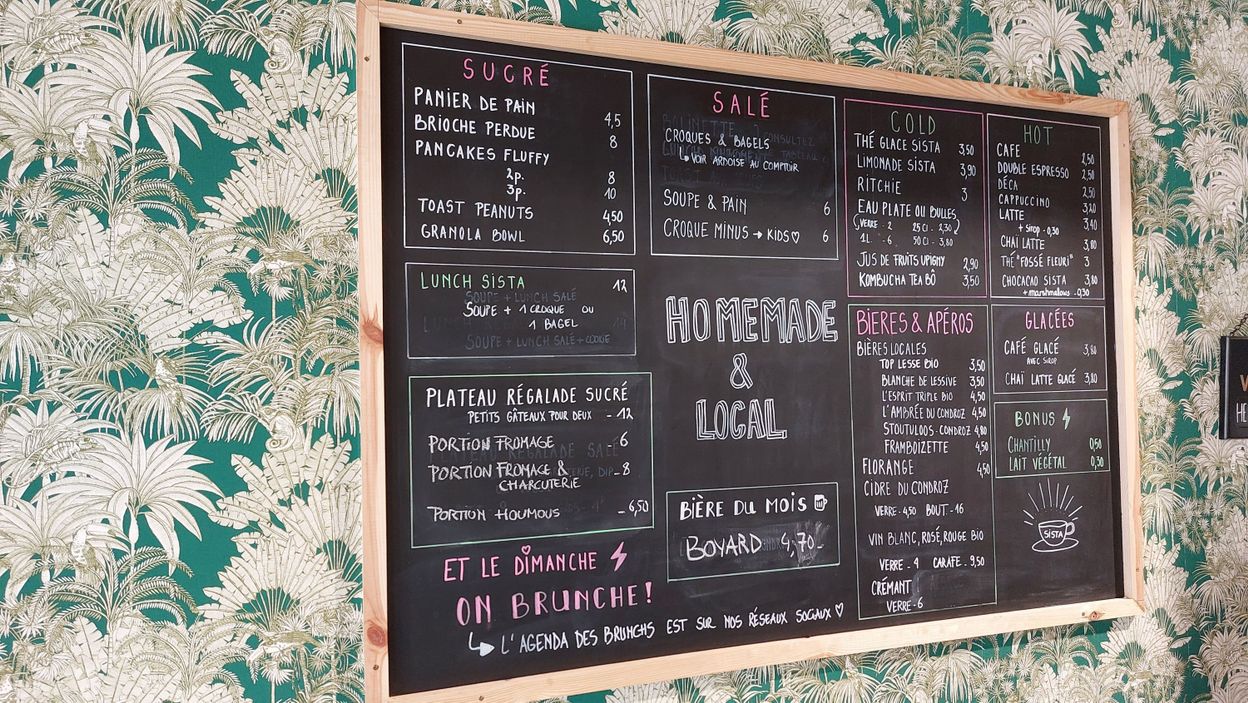 SUCRÉ
PANIER DE PAIN 4,5
BRIOCHE PERDUE 8
PANCAKES FLUFFY
2p. 8
3p. 10
TOAST PEANUTS 4,50
GRANOLA BOWL 6,50
LUNCH SISTA 12
SOUPE + LUNCH SALÉ
SOUPE + 1 CROQUE OU
1 BAGEL
SOUPE + LUNCH SALÉ + COOKIE
PLATEAU RÉGALADE SUCRÉ
PETITS GÂTEAUX POUR DEUX - 12
PORTION FROMAGE - 6
PORTION FROMAGE & - 8
CHARCUTERIE
PORTION HOUMOUS - 6,50
ET LE DIMANCHE
ON BRUNCHE!
L'AGENDA DES BRUNCHS EST SUR NOS RÉSEAUX SOCIAUX ♡
SALÉ
CROQUES & BAGELS
↳ VOIR ARDOISE AU COMPTOIR
SOUPE & PAIN 6
CROQUE MINUS → KIDS ♡ 6
HOMEMADE
&
LOCAL
BIÈRE DU MOIS
BOYARD 4,70-
COLD
THÉ GLACE SISTA 3,50
LIMONADE SISTA 3,90
RITCHIE 3
EAU PLATE OU BULLES
VERRE - 2 25CL - 2,30
1L - 6 50CL - 3,80
JUS DE FRUITS UPIGNY 2,90
KOMBUCHA TEA BÔ 3,50
BIERES & APÉROS
BIÈRES LOCALES
TOP LESSE BIO 3,50
BLANCHE DE LESSIVE 3,50
L'ESPRIT TRIPLE BIO 4,50
L'AMBRÉE DU CONDROZ 4,50
STOUTULOOS - CONDROZ 4,80
FRAMBOIZETTE 4,50
FLORANGE 4,50
CIDRE DU CONDROZ
VERRE - 4,50 BOUT - 16
VIN BLANC, ROSÉ, ROUGE BIO
VERRE - 4 CARAFE - 9,50
CRÉMANT
VERRE - 6
HOT
CAFE 2,50
DOUBLE ESPRESSO 2,50
DÉCA 2,50
CAPPUCCINO 3,20
LATTE 3,40
+ SIROP - 0,30
CHAÏ LATTE 3,80
THÉ "FOSSÉ FLEURI" 3
CHOCACAO SISTA 3,80
+ marshmallows - 0,30
GLACÉES
CAFÉ GLACÉ 3,80
AVEC SIROP
CHAÏ LATTE GLACÉ 3,80
BONUS
CHANTILLY 0,50
LAIT VÉGÉTAL 0,30
SISTA